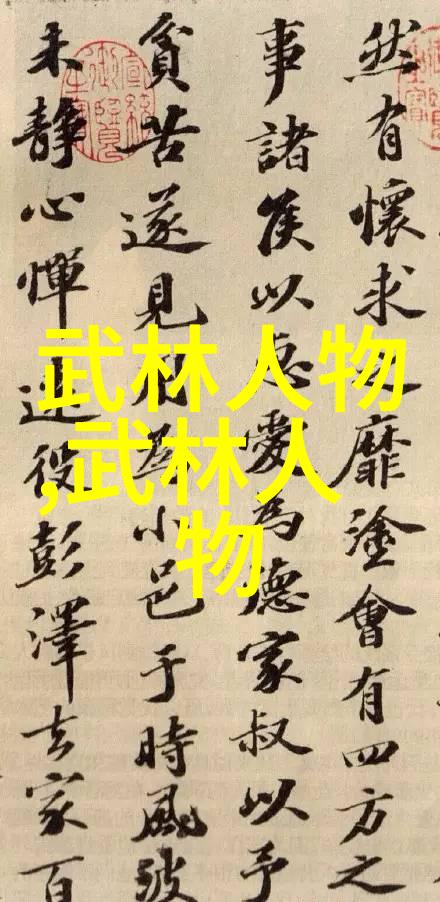 然有懷求之靡塗會有四方之
事諸侯以惠愛為德家叔以予
貧苦遂見用為小邑于時風波
未靜心憚遠役彭澤去家百
武林人物
,武林人
物